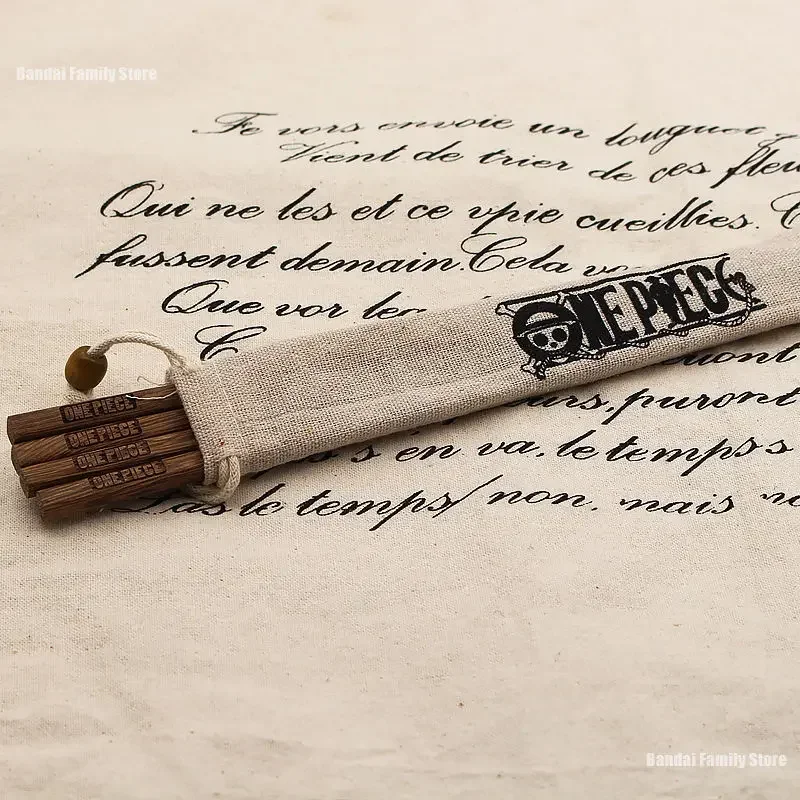 Bandai Family Store
Fe vors envoie un
Vient de trier de ces
Qui ne les et ce vpie cueillies.
fussent demain. Cela
Que vor
ONE PIECE
ONE PIECE
ONE PIECE
ONE PIECE
ONE PIECE
puront
s'en va. le temps s
le temps/ non. mais
Bandai Family Store